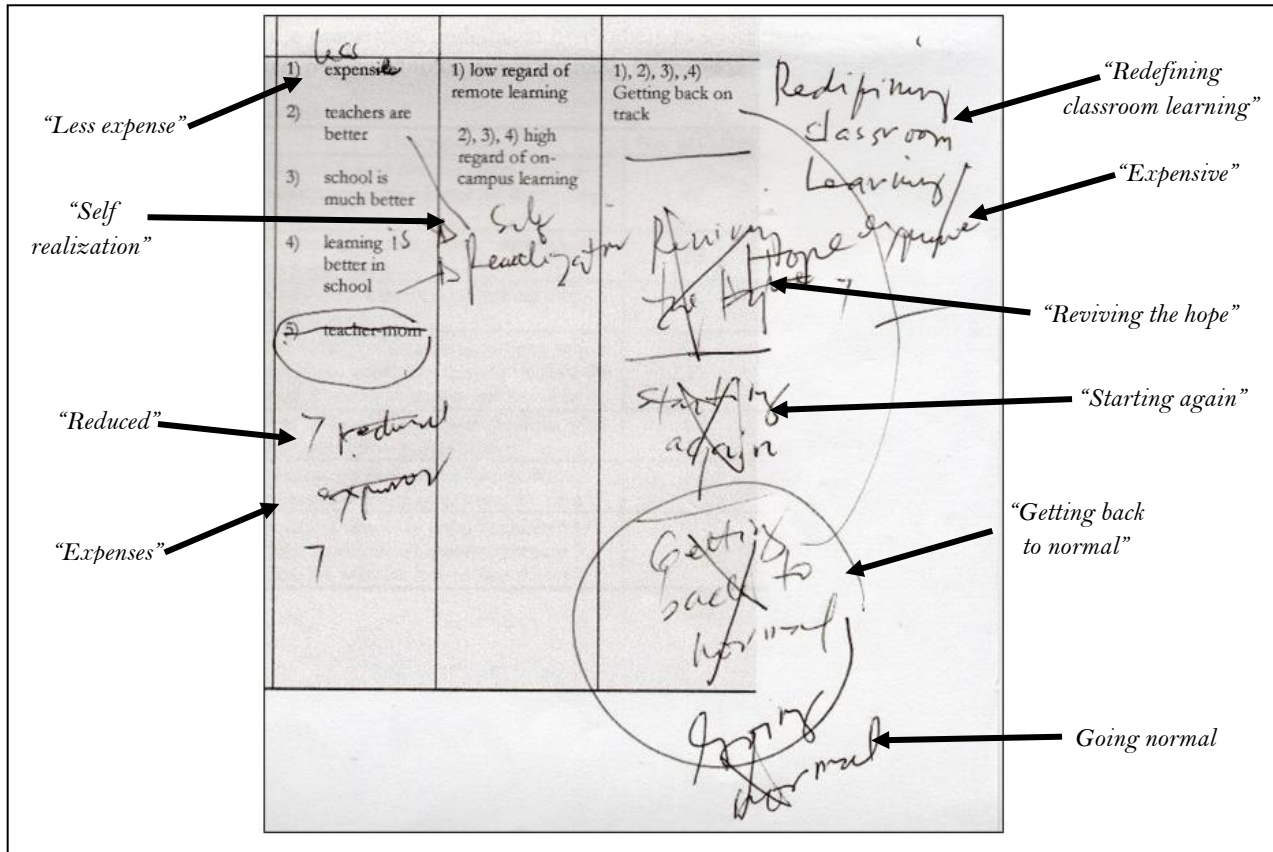 “Less expense”
“Self
realization”
“Reduced”
“Expenses”
less
1) expensive
2) teachers are
better
3) school is
much better
4) learning is
better in
school
5) teacher-mom
7 reduced
expenses
7
1) low regard of
remote learning
2), 3), 4) high
regard of on-
campus learning
Self
Reaclization
1), 2), 3), ,4)
Getting back on
track
Reviving
Hope
the Hope
starting
again
Getting
back to
normal
Going
normal
Redifining
classroom
Learning
expensive
“Redefining
classroom learning”
“Expensive”
“Reviving the hope”
“Starting again”
“Getting back
to normal”
Going normal